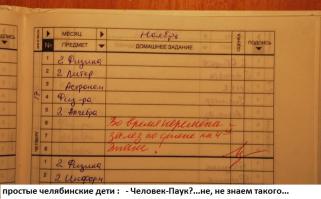 МЕСЯЦ Ноябрь
№ ПРЕДМЕТ ДОМАШНЕЕ ЗАДАНИЕ ОЦЕНКА ПОДПИСЬ
1 2 Физика
2 2 Литер
3 Астроном
4 Физ-ра
5 2 Алгебра
6 Во время перемены
7 залез по стене на 4
8 этаж!
1 2 Физика
2 2 Информ
простые челябинские дети : - Человек-Паук?...не, не знаем такого...